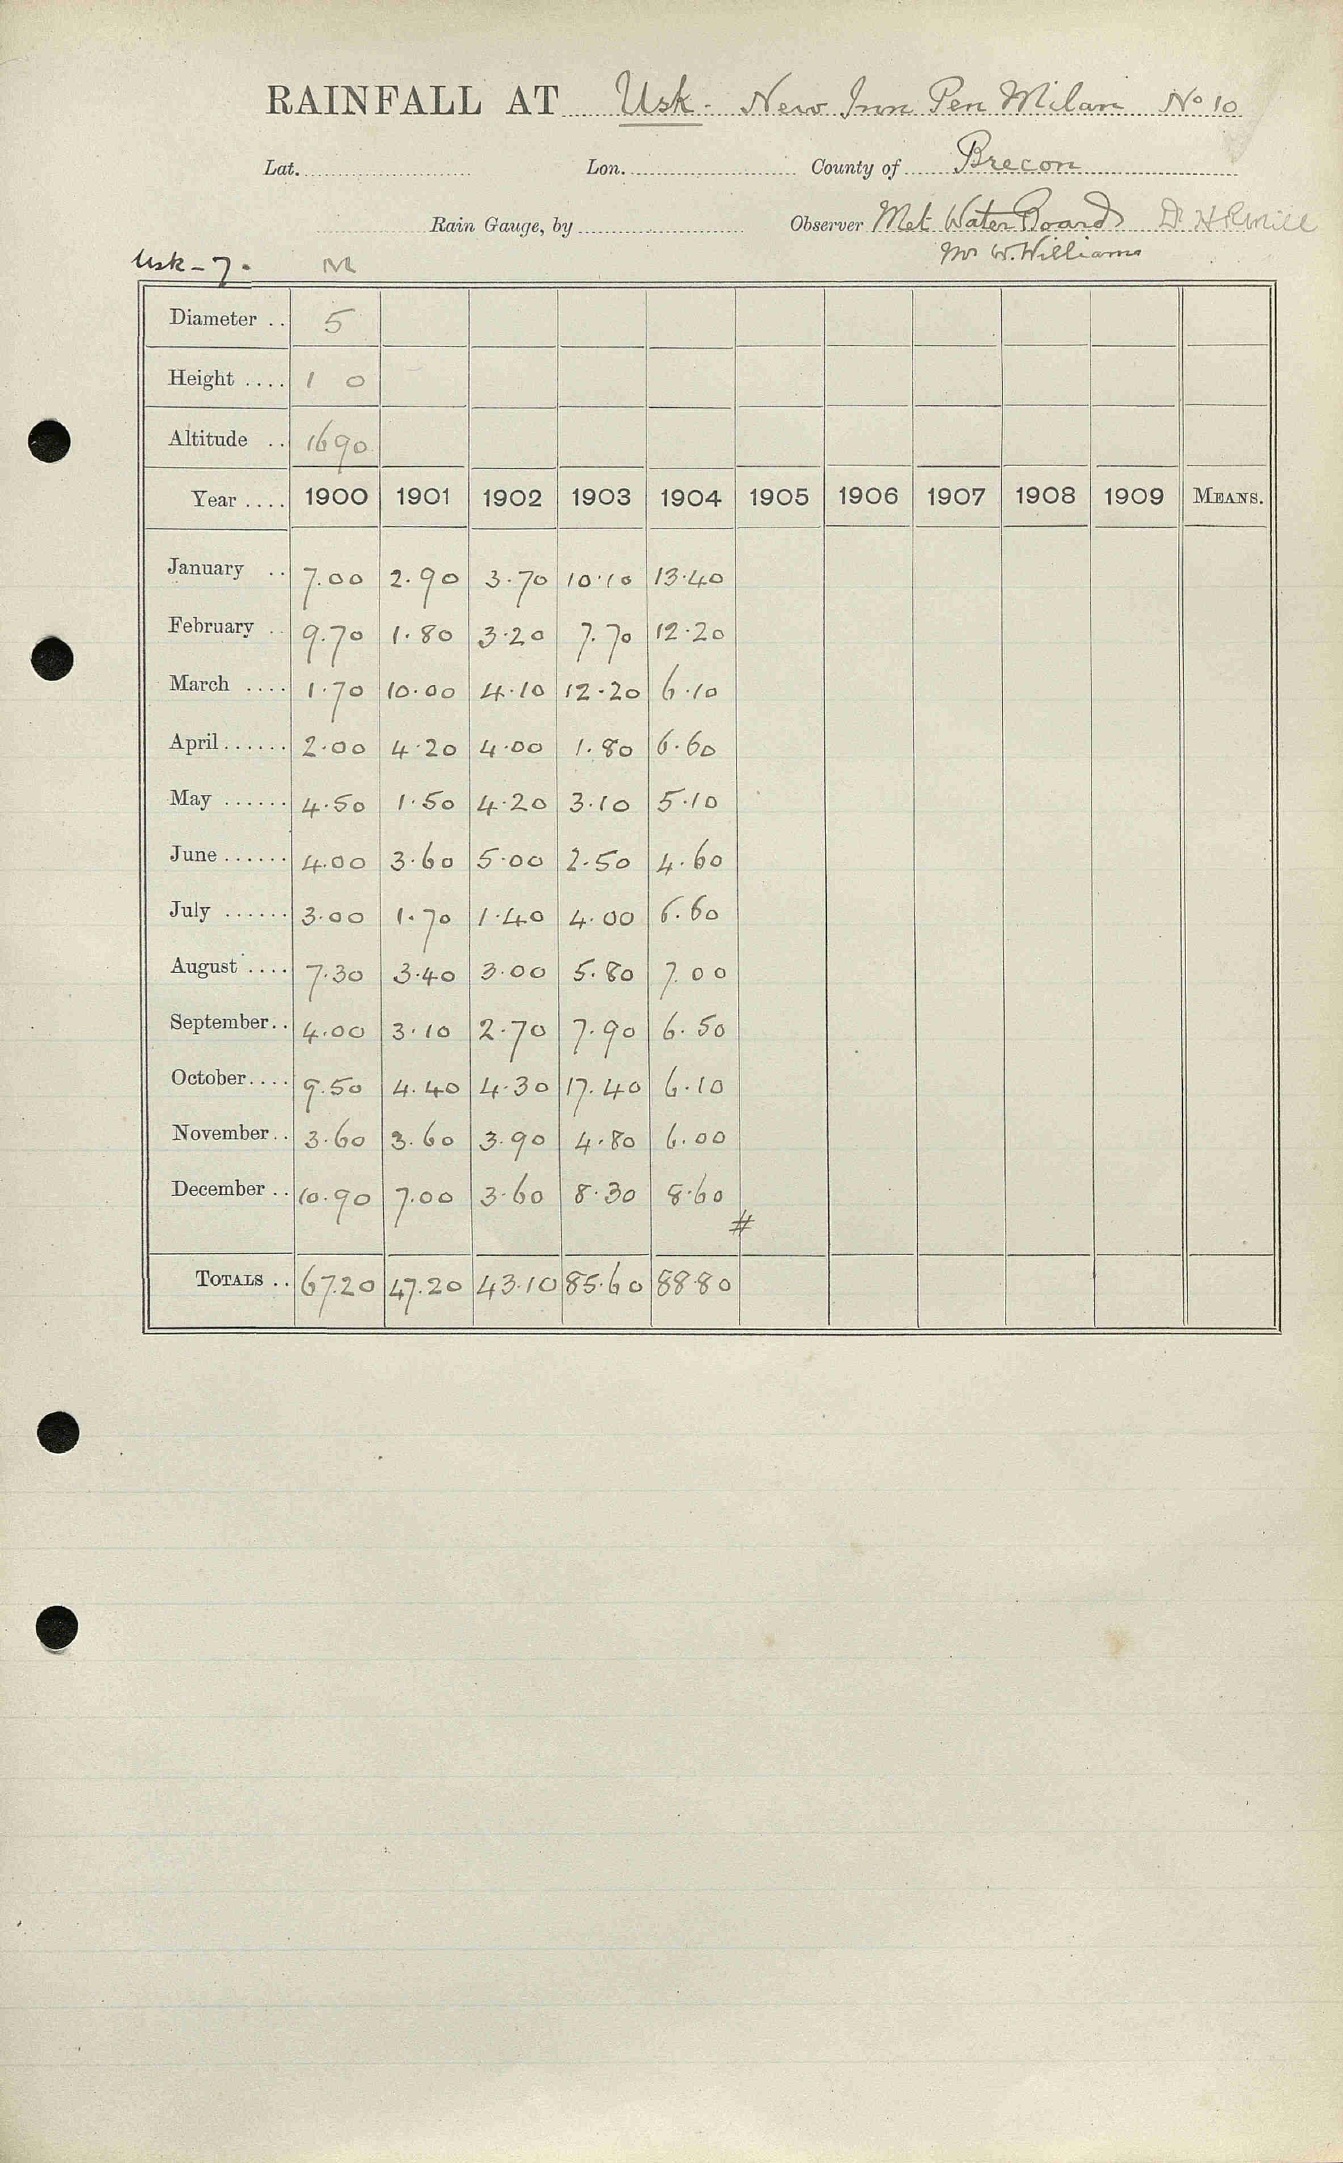 RAINFALL AT Usk - New Inn Pen Milan No 10
Lat. Lon. County of Brecon
Rain Gauge, by Observer Met Water Board Dr H R Mill
Mr W. Williams
Usk - 7. M
Diameter .. 5
Height .... 1 0
Altitude .. 1690
Year .... 1900 1901 1902 1903 1904 1905 1906 1907 1908 1909 MEANS.
January .. 7.00 2.90 3.70 10.10 13.40
February .. 9.70 1.80 3.20 7.70 12.20
March .... 1.70 10.00 4.10 12.20 6.10
April ...... 2.00 4.20 4.00 1.80 6.60
May ...... 4.50 1.50 4.20 3.10 5.10
June ...... 4.00 3.60 5.00 2.50 4.60
July ...... 3.00 1.70 1.40 4.00 6.60
August .... 7.30 3.40 3.00 5.80 7.00
September .. 4.00 3.10 2.70 7.90 6.50
October .... 9.50 4.40 4.30 17.40 6.10
November .. 3.60 3.60 3.90 4.80 6.00
December .. 10.90 7.00 3.60 8.30 8.60
#
TOTALS .. 67.20 47.20 43.10 85.60 88.80